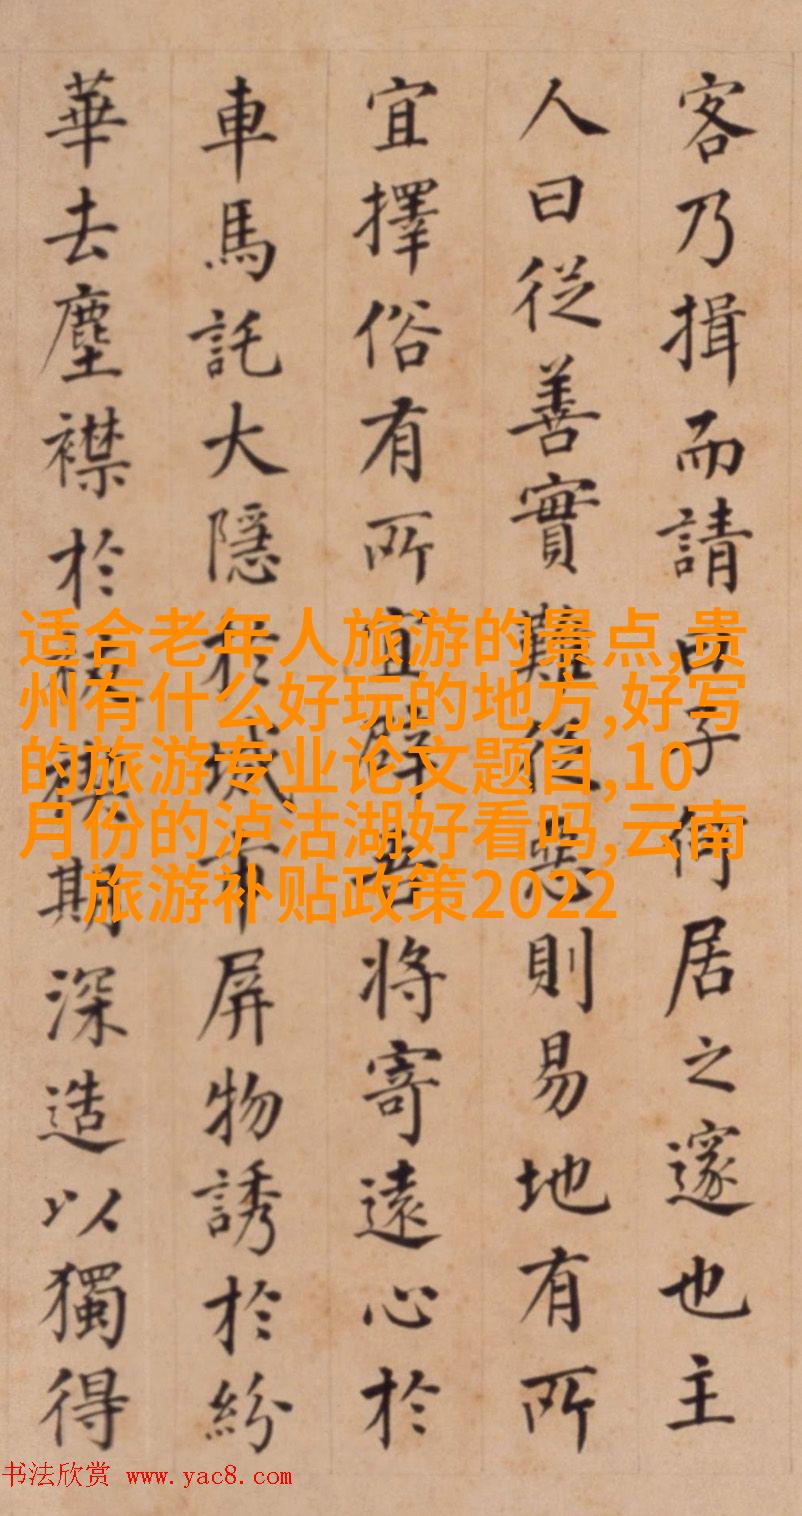 客乃揖而請曰子何居之邃也主
人曰從善實難從惡則易地有所
宜擇俗有所宜辟吾將寄遠心於
車馬託大隱於城市屏物誘於紛
華去塵襟於期深造以獨得
适合老年人旅游的景点,贵
州有什么好玩的地方,好写
的旅游专业论文题目,10
月份的泸沽湖好看吗,云南
旅游补贴政策2022
书法欣赏 www.yac8.com